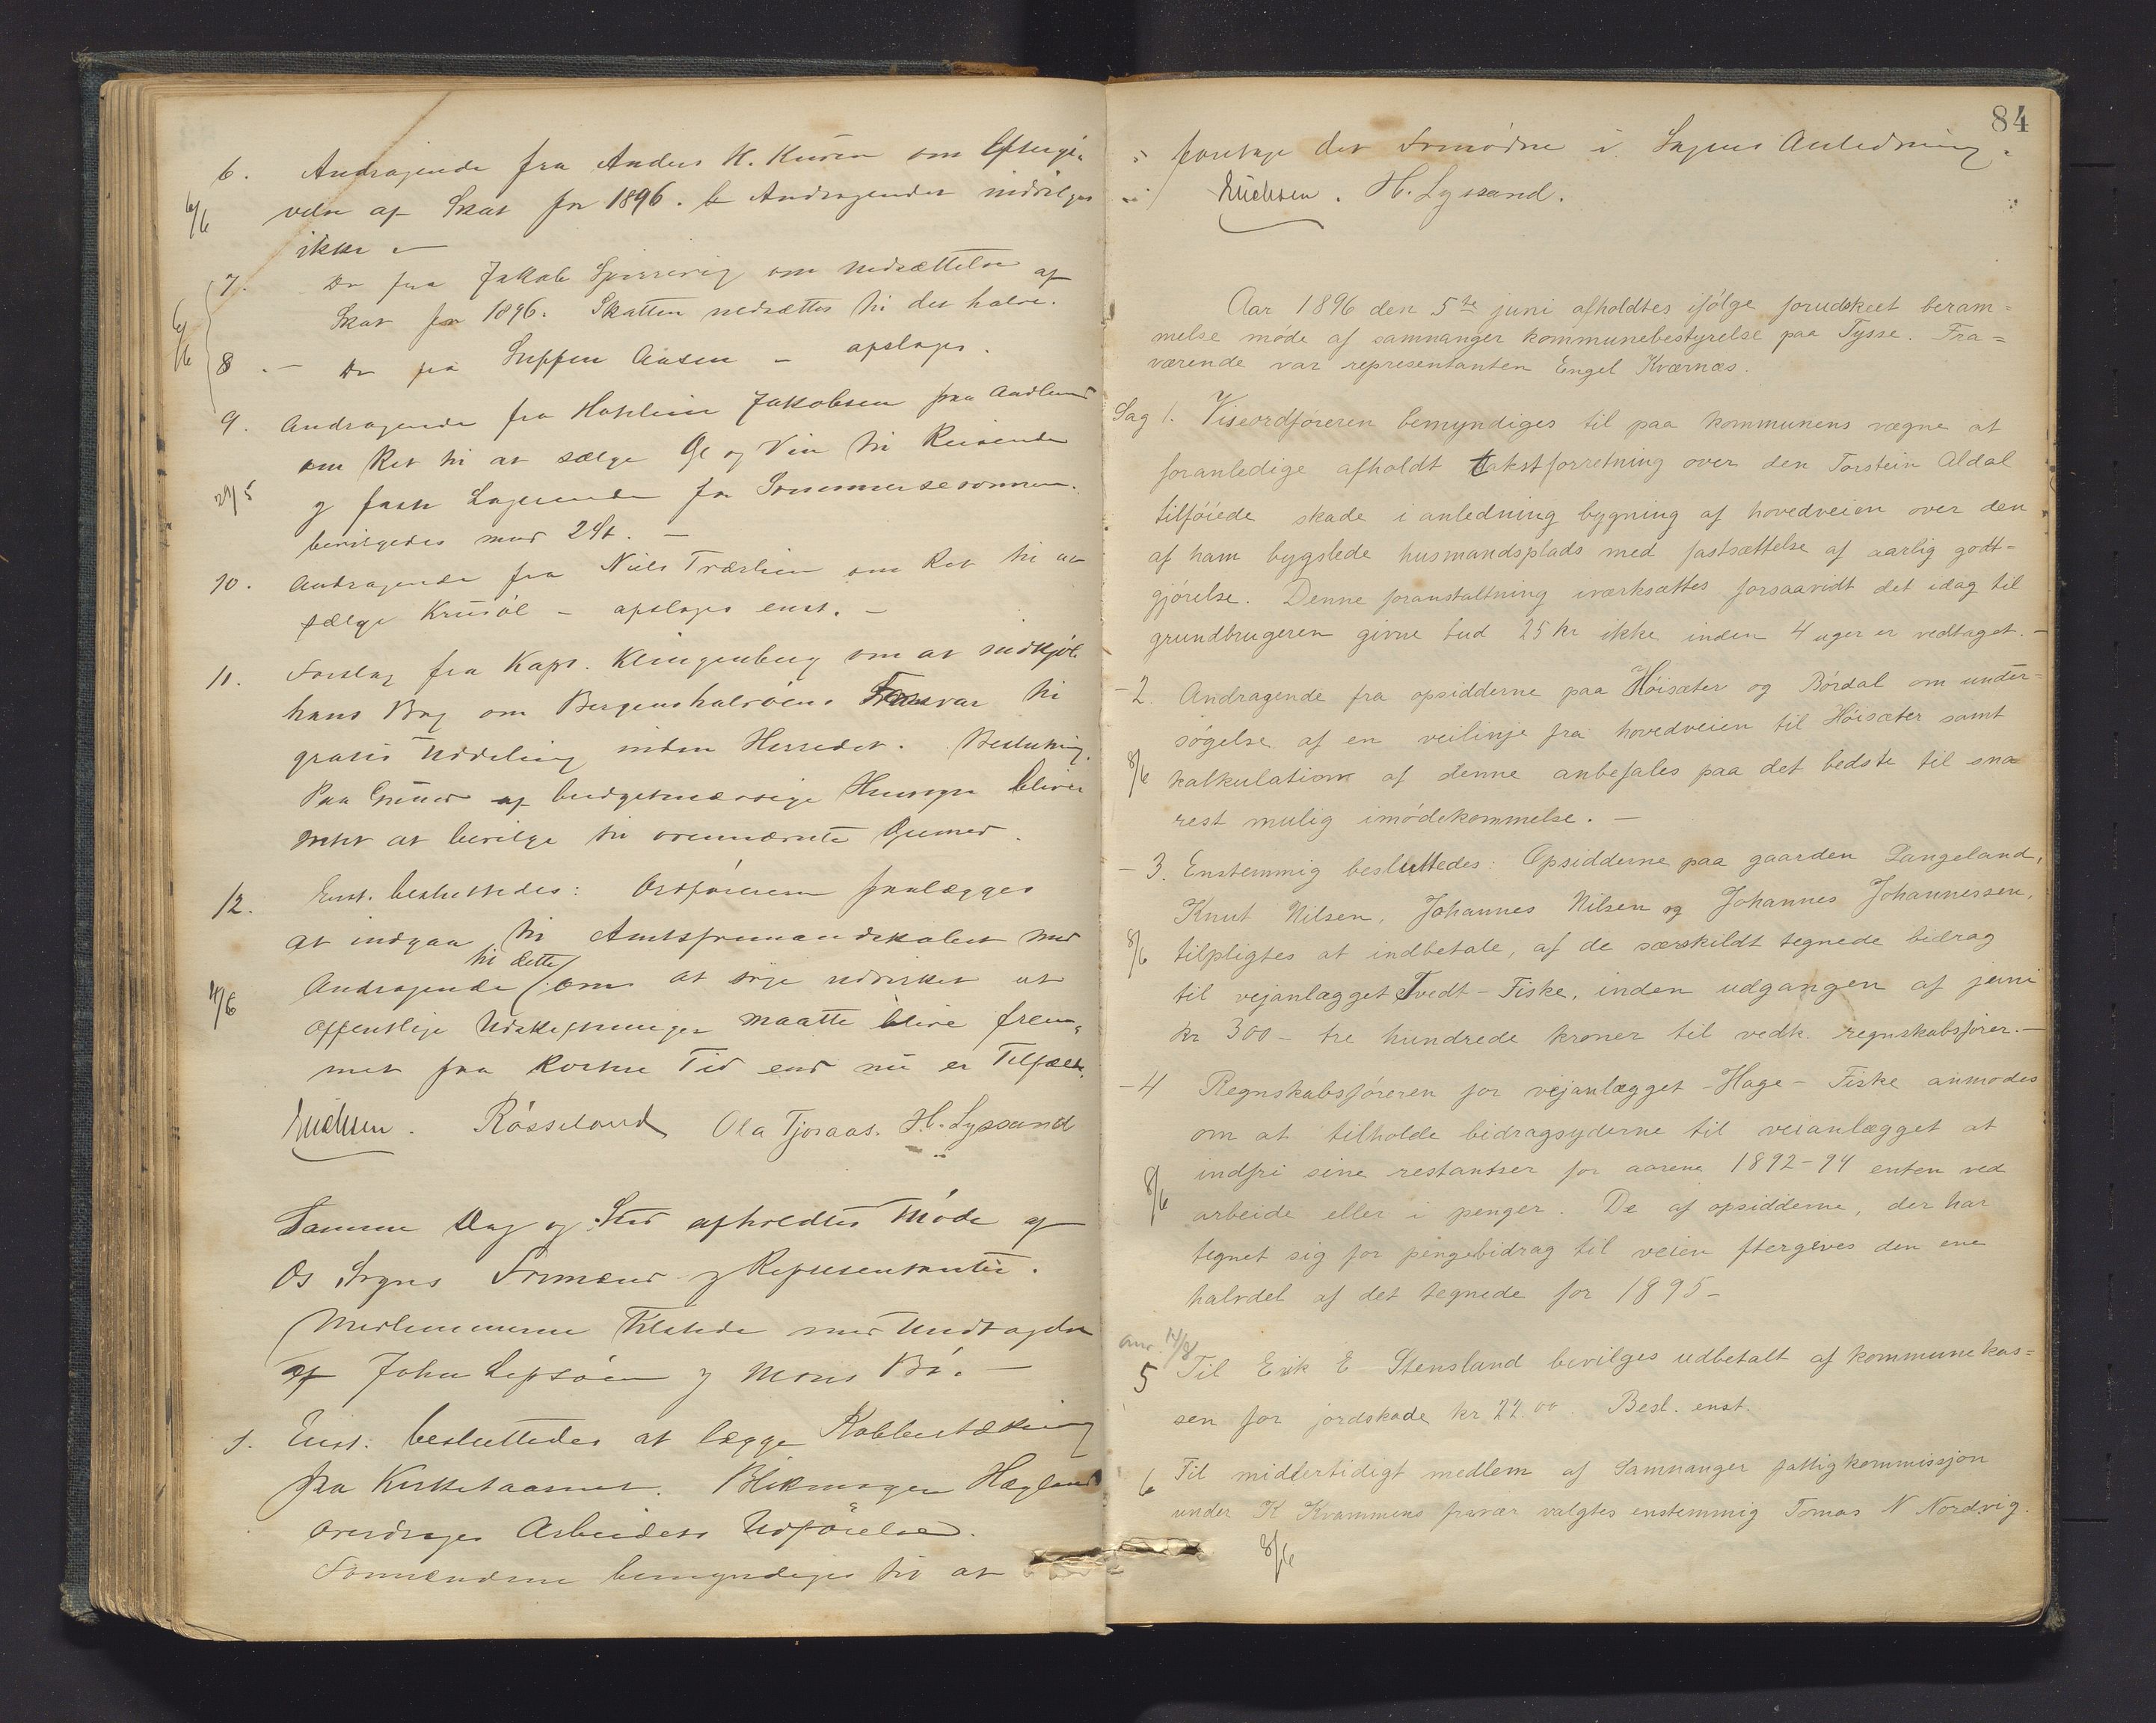 6. Andragende fra Anders K. Kuven om Eftergi-
velse af Skat for 1896. Andragendet indvilges
6/6
ikke.
7. Do fra Jakob om Nedsættelse af
Skat for 1896. Skatten nedsættes til det halve.
6/6
8. - Do fra Aasen - afslages.
9. Andragende fra Jakobsen fra
om Ret til at sælge Øl og Vin til Reisende
29/5
og faste Logerende for Sommersesonnen.
bevilgedes mod 2 St. -
10. Andragende fra Niels Træslien om Ret til at
sælge Krusøl - afslages enst. -
11. Forslag fra Kapt. Klingenberg om at indkjøbe
hans Bog om Bergenshalvøens Forsvar til
gratis Uddeling inden Herredet. Beslutning.
Paa Grund af budgetmæssige Hensyn blev
intet at bevilge til ovennævnte Øiemed.
12. Enst. besluttedes: Ordføreren paalægges
at indgaa til Amtsformandskabet med
til dette
Andragende om at søge udvirket at
4/6
offentlige Udskiftninger maatte blive frem-
met paa kortere Tid end nu er Tilfælde.
Røsseland Ola Tjoraas. H. Lyssand
Samme Dag og Sted afholdtes Møde af
Os Sogns Formænd og Repræsentanter.
Medlemmerne tilstede med Undtagelse
af John Lepsøen og Mons Bø. -
1. Enst. besluttedes at lægge Kobbertækning
paa Kirketaarnet. Blikmager Hagland
overdrages Arbeidets Udførelse.
Formændene bemyndiges til at
84
foretage det Fornødne i Sagens Anledning.
H. Lyssand.
Aar 1896 den 5te juni afholdtes ifølge forudskeet beram=
melse møde af samnanger kommunebestyrelse paa Tysse. Fra=
værende var representanten Engel Kværnæs.
Sag 1. Viseordføreren bemyndiges til paa kommunens vægne at
foranledige afholdt takstforretning over den Torstein Aldal
tilføiede skade i anledning bygning af hovedveien over den
af ham bygslede husmandsplads med fastsættelse af aarlig godt=
gjørelse. Denne foranstaltning iværksættes forsaavidt det idag til
grundbrugeren givne bud 25 kr ikke inden 4 uger er vedtaget. -
- 2. Andragende fra opsidderne paa Høisæter og Børdal om under=
søgelse af en veilinje fra hovedveien til Høisæter samt
8/6
kalkulation af denne anbefales paa det bedste til sna
rest mulig imødekommelse. -
- 3. Enstemmig besluttedes: Opsidderne paa gaarden Langeland,
Knut Nilsen, Johannes Nilsen og Johannes Johannessen,
8/6
tilpligtes at indbetale, af de særskildt tegnede bidrag
til vejanlægget Tvedt - Fiske, inden udgangen af juni
kr 300 - tre hundrede kroner til vedk. regnskabsfører. -
- 4 Regnskabsføreren for vejanlægget - Hage - Fiske anmodes
om at tilholde bidragsyderne til veianlægget at
indfri sine restantser for aarene 1892-94 enten ved
8/6
arbeide eller i penger. De af opsidderne, der har
tegnet sig for pengebidrag til veien ftergives den ene
halvdel af det tegnede for 1895 -
anv. 14/8
5 Til Erik E Stensland bevilges udbetalt af kommunekas=
sen for jordskade kr 22.00. Besl. enst.
6 Til midlertidigt medlem af Samnanger fattigkommissjon
under K Kvammens fravær valgtes enstemmig Tomas N Nordvig.
8/6